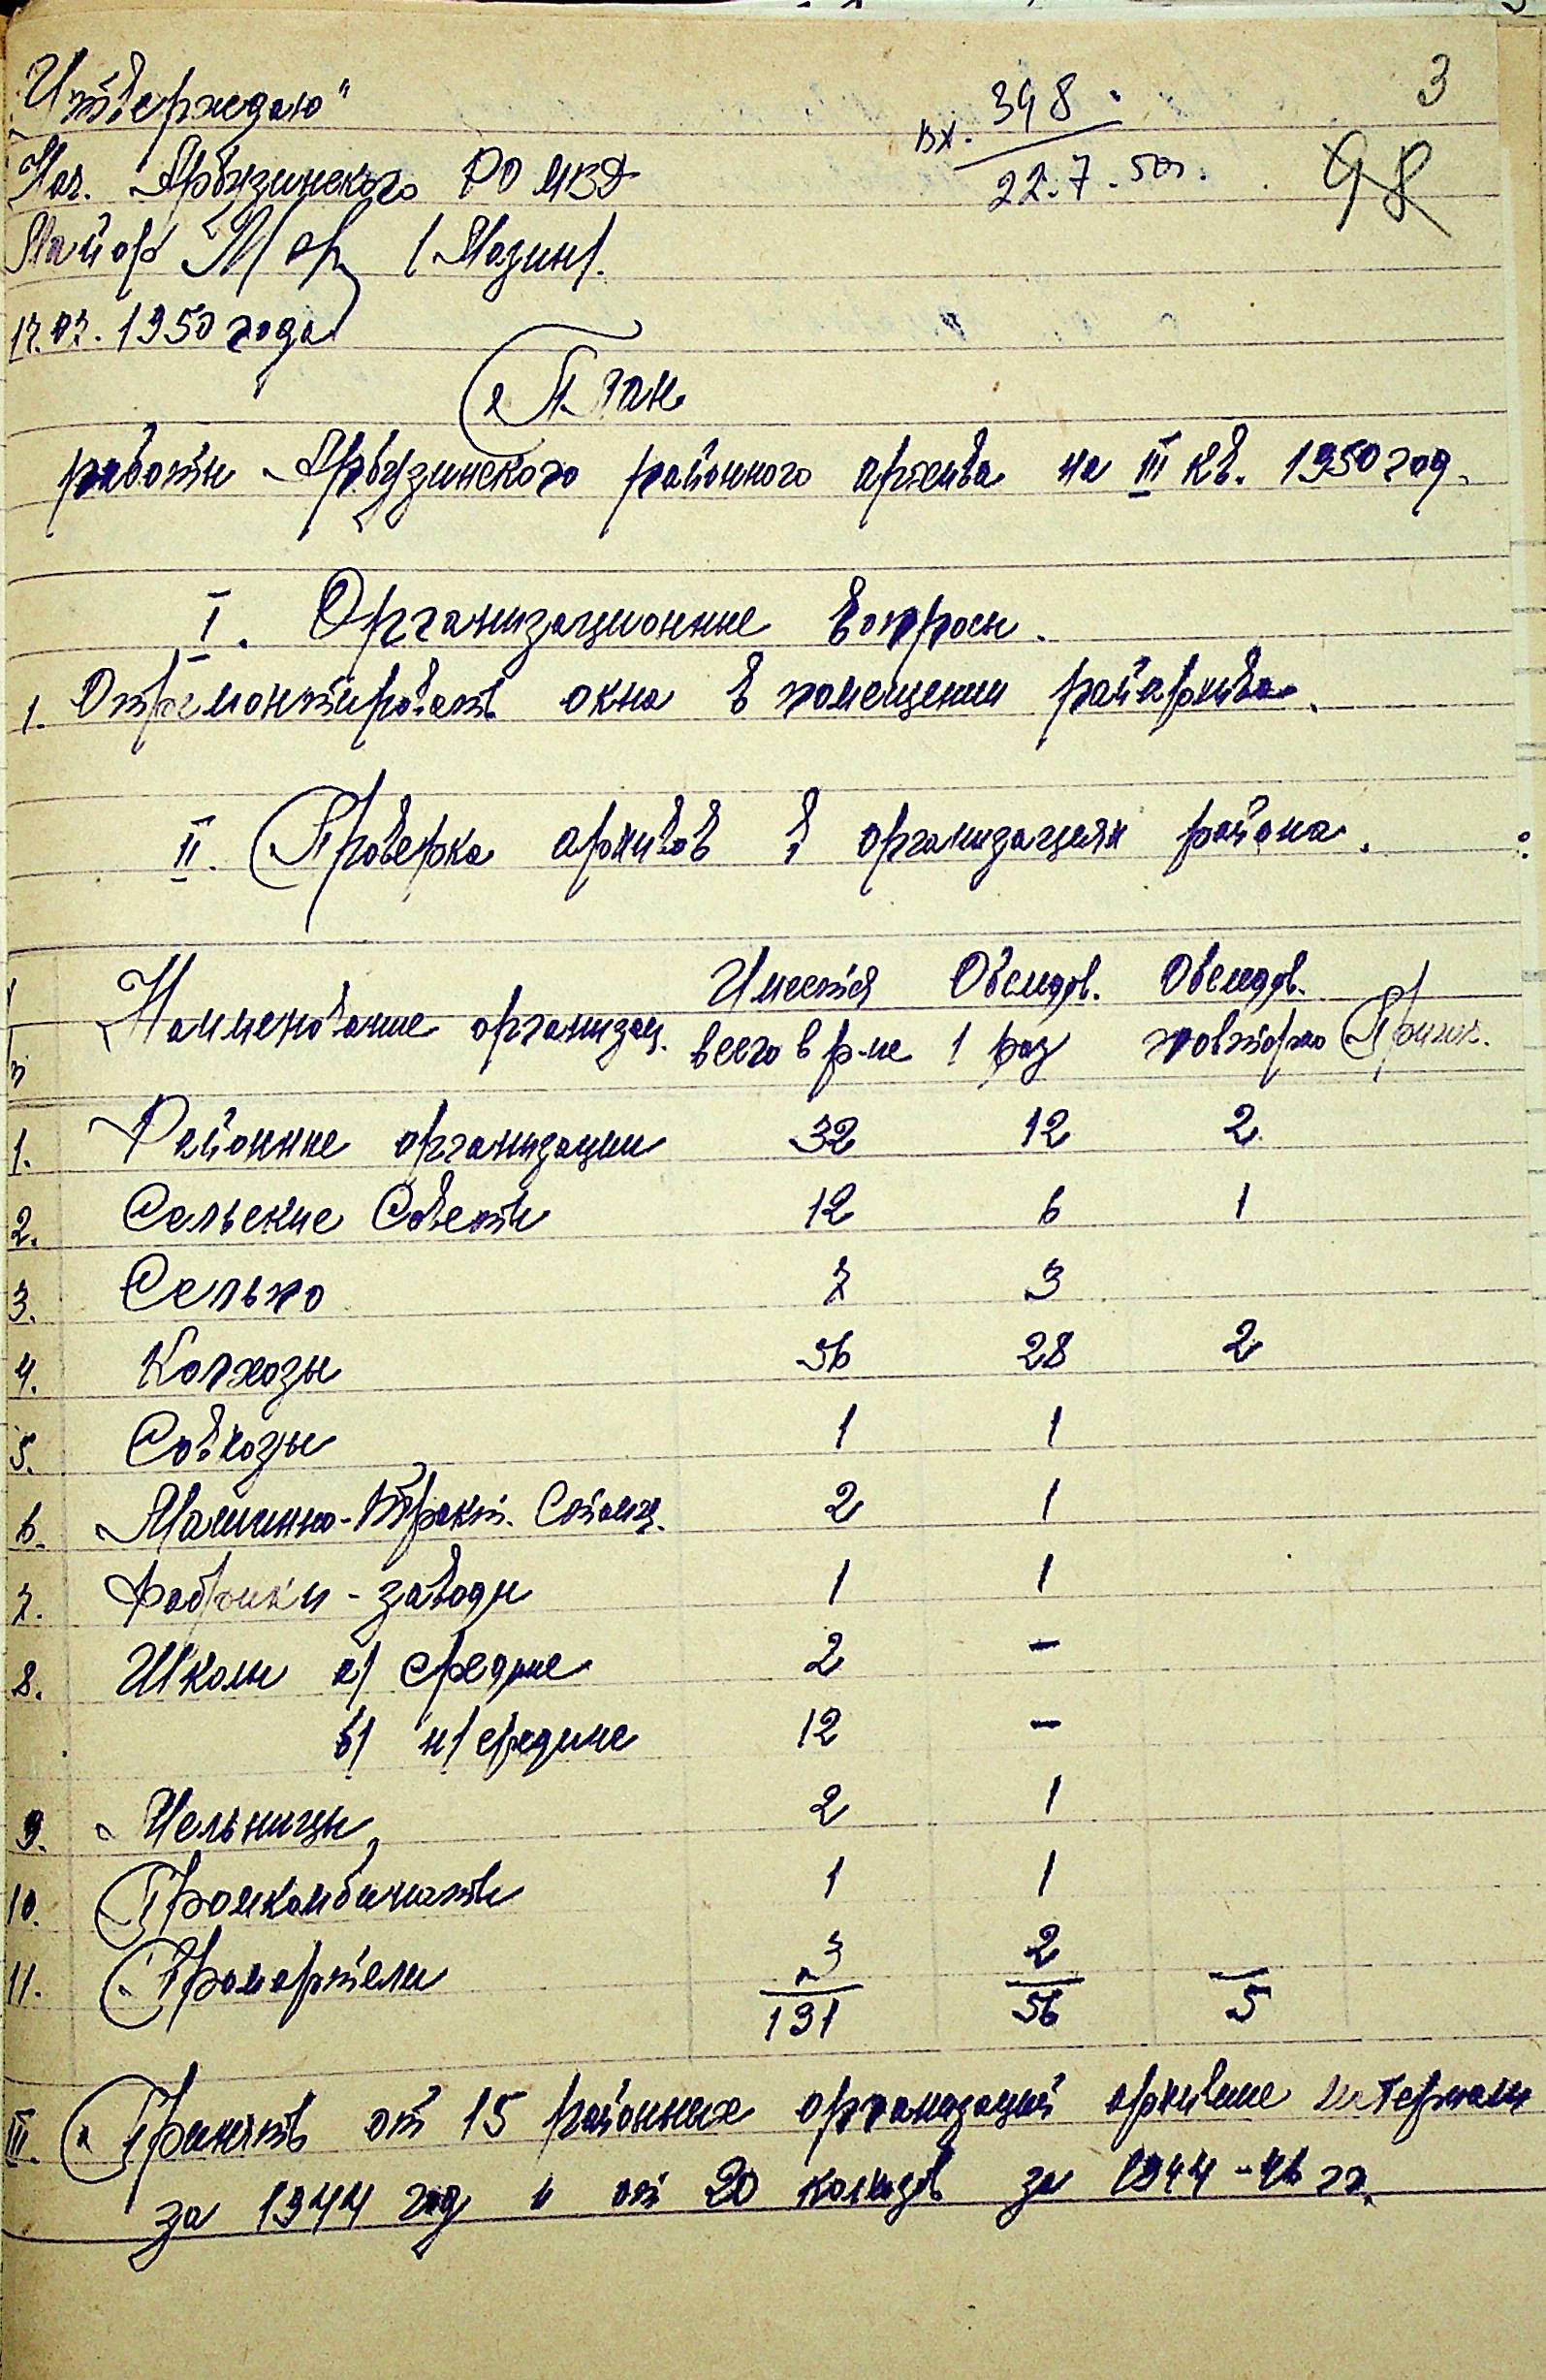 „Утверждаю"
Нач. Арбузинского РО МВД
Майор (Мазин).
17.07.1950 года
вх. 398
22.7.50г.
3
98
План
работы Арбузинского районного архива на III кв. 1950 год.
I. Организационные вопросы.
1. Отремонтировать окна в помещении райархива.
II. Проверка архивов в организациях района.
Наименование организац. Имеется всего в р-не Обследов. 1 раз Обследов. повторно Примеч.
1. Районные организации 32 12 2
2. Сельские Советы 12 6 1
3. Сельпо 7 3
4. Колхозы 56 28 2
5. Совхозы 1 1
6. Машинно-Тракт. Станц. 2 1
7. Фабрики-заводы 1 1
8. Школы а) средние 2 –
б) н/средние 12 –
9. Мельницы 2 1
10. Промкомбинаты 1 1
11. Промартели 3 2
131 56 5
III. Принять от 15 районных организаций архивные материалы
за 1944 год и от 20 колхозов за 1944-46 гг.